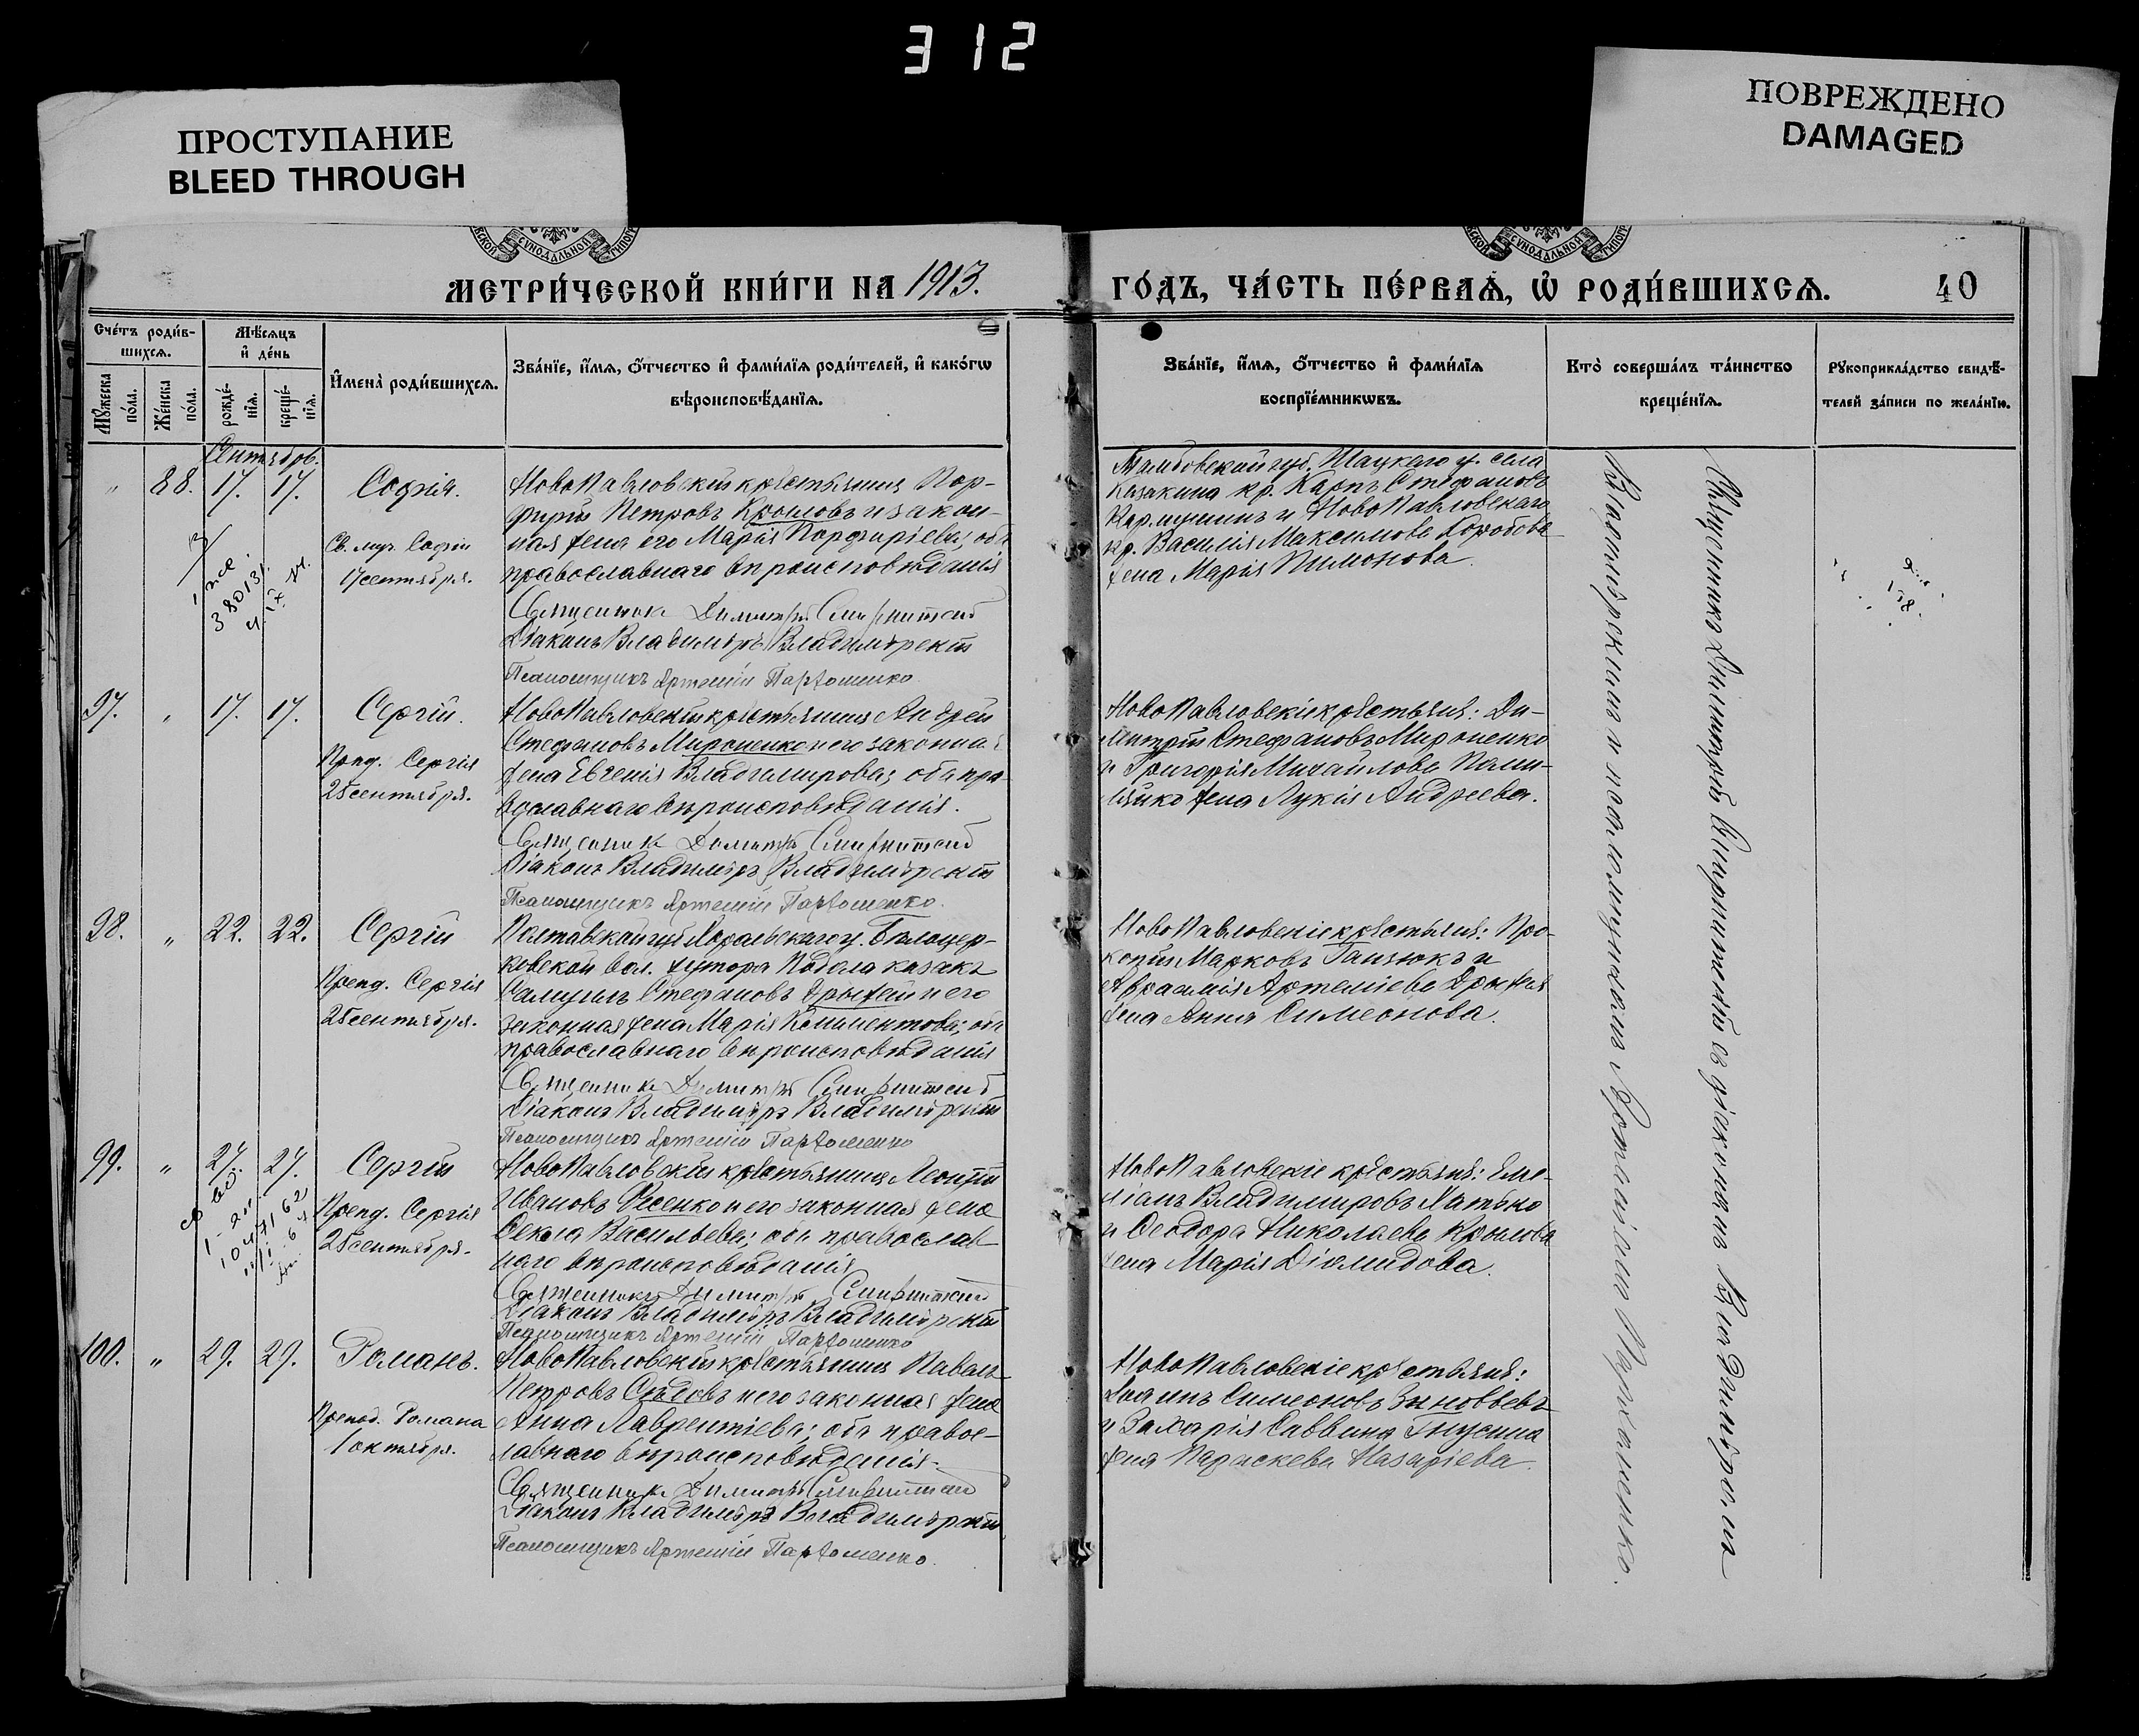 312
ПРОСТУПАНИЕ
BLEED THROUGH
ПОВРЕЖДЕНО
DAMAGED
СѴНОДАЛЬНОЙ
СѴНОДАЛЬНОЙ
МЕТРИ́ЧЕСКОЙ КНИ́ГИ НА 1913.
ГО́ДЪ, ЧА́СТЬ ПЕ́РВАѦ, Ѡ҆ РОДИ́ВШИХСѦ. 40
Сче́тъ роди́в-
шихсѧ.
Мѣ́сѧцъ
и҆ де́нь
Мꙋ́жеска
по́ла.
Же́нска
по́ла.
рожде́-
нїѧ.
креще́-
нїѧ.
И҆мена̀ роди́вшихсѧ.
Зва́нїе, и҆́мѧ, ѻ҆́тчество и҆ фами́лїѧ роди́телей, и҆ како́гѡ
вѣроисповѣ́данїѧ.
Зва́нїе, и҆́мѧ, ѻ҆́тчество и҆ фами́лїѧ
воспрїе́мникѡвъ.
Кто̀ соверша́лъ та́инство
креще́нїѧ.
Рꙋкоприкла́дство свидѣ́-
телей за́писи по жела́нїю.
Сентябрь.
" 88. 17. 17. Софія.
Св. муч. Софіи
17 сентября.
НовоПавловскій крестьянинъ Пор-
фирій Петровъ Кромовъ и закон-
ная жена его Марія Порфиріева; оба
православнаго вѣроисповѣданія
Священникъ Димитрій
Діаконъ Владиміръ Владимірскій
Псаломщикъ Артемій Пархоменко
Тамбовской губ. Шацкаго у. села
Казакина кр. Карпъ Стефановъ
и НовоПавловскаго
кр. Василія Максимова Коробова
жена Марія Пимонова.
97. " 17. 17. Сергій.
Преп. Сергія
25 сентября.
НовоПавловскій крестьянинъ Андрей
Стефановъ Мироненко и его законная
жена Евгенія Владимирова; оба пра-
вославнаго вѣроисповѣданія.
Священникъ Димитрій
Діаконъ Владиміръ Владимірскій
Псаломщикъ Артемій Пархоменко.
НовоПавловскіе крестьяне: Ди-
митрій Стефановъ Мироненко
и Григорія Михайлова
жена Лукія Андреева.
98. " 22. 22. Сергій
Преп. Сергія
25 сентября.
Полтавской губ. у. Бѣлоцер-
ковской вол. хутора Подола казакъ
Стефановъ и его
законная жена Марія Климентова; оба
православнаго вѣроисповѣданія
Священникъ Димитрій
Діаконъ Владиміръ Владимірскій
Псаломщикъ Артемій Пархоменко
НовоПавловскіе крестьяне: Про-
копій Марковъ Ганзюкъ и
Авраамія Артеміева
жена Анна Симеонова.
99. " 27. 27. Сергій
Преп. Сергія
25 сентября.
НовоПавловскій крестьянинъ Леонтій
Ивановъ и его законная жена
Ѳекла Васильева; оба православ-
наго вѣроисповѣданія
Священникъ Димитрій
Діаконъ Владиміръ Владимірскій
Псаломщикъ Артемій Пархоменко
НовоПавловскіе крестьяне: Еме-
ліанъ Владимировъ Хатько
и Ѳеодора Николаева Кромова
жена Марія Діомидова.
100. " 29. 29. Романъ.
Препод. Романа
1 октября.
НовоПавловскій крестьянинъ Павелъ
Петровъ Сѣдовъ и его законная жена
Анна Лаврентіева; оба правос-
лавнаго вѣроисповѣданія.
Священникъ Димитрій
Діаконъ Владиміръ Владимірскій
Псаломщикъ Артемій Пархоменко.
НовоПавловскіе крестьяне:
Симеоновъ Зиновьевъ
и Захарія Саввина
жена Параскева Назаріева.
Священникъ Димитрій съ діакономъ Владиміромъ
Владимірскимъ и псаломщикомъ Артеміемъ Пархоменко.